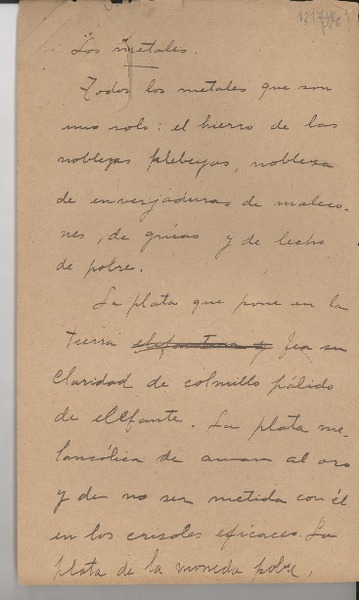 Los metales.
Todos los metales que son
uno solo: el hierro de las
noblezas plebeyas, nobleza
de envergaduras de maleco-
nes, de grúas y de lecho
de pobre.
La plata que pone en la
tierra fea su
claridad de colmillo pálido
de elefante. La plata me-
lancólica de aman al oro
y de no ser metida con él
en los crisoles eficaces. La
plata de la moneda pobre,